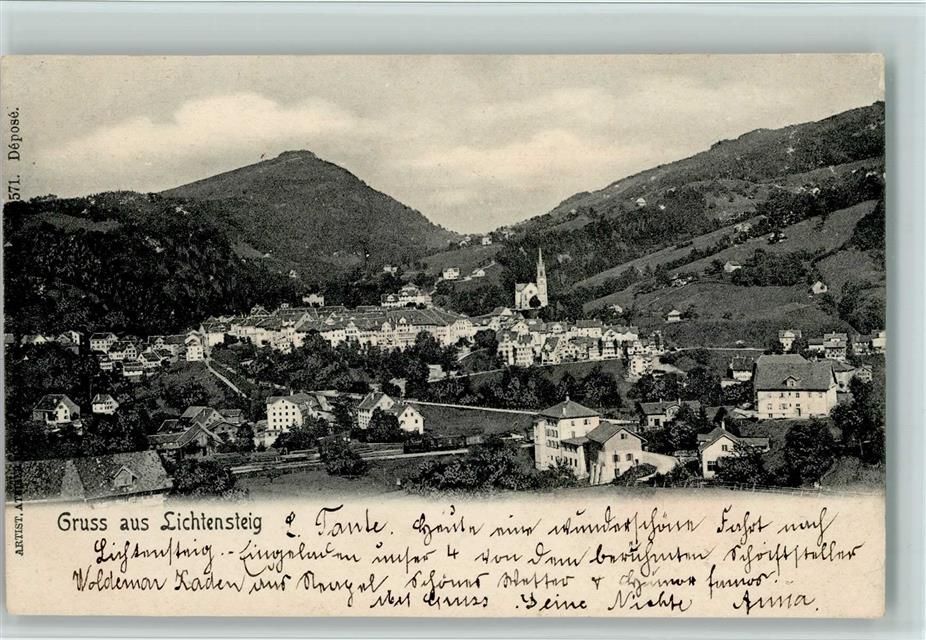 571. Déposé.
ARTIST. ATEL
Gruss aus Lichtensteig
L. Tante. Heute eine wunderschöne Fahrt nach
Lichtensteig. - Eingeladen unser 4 von dem berühmten Schriftsteller
Woldemar Kaden aus Neapel Schönes Wetter & Humor famos.
Mit Gruss Deine Nichte Anna.